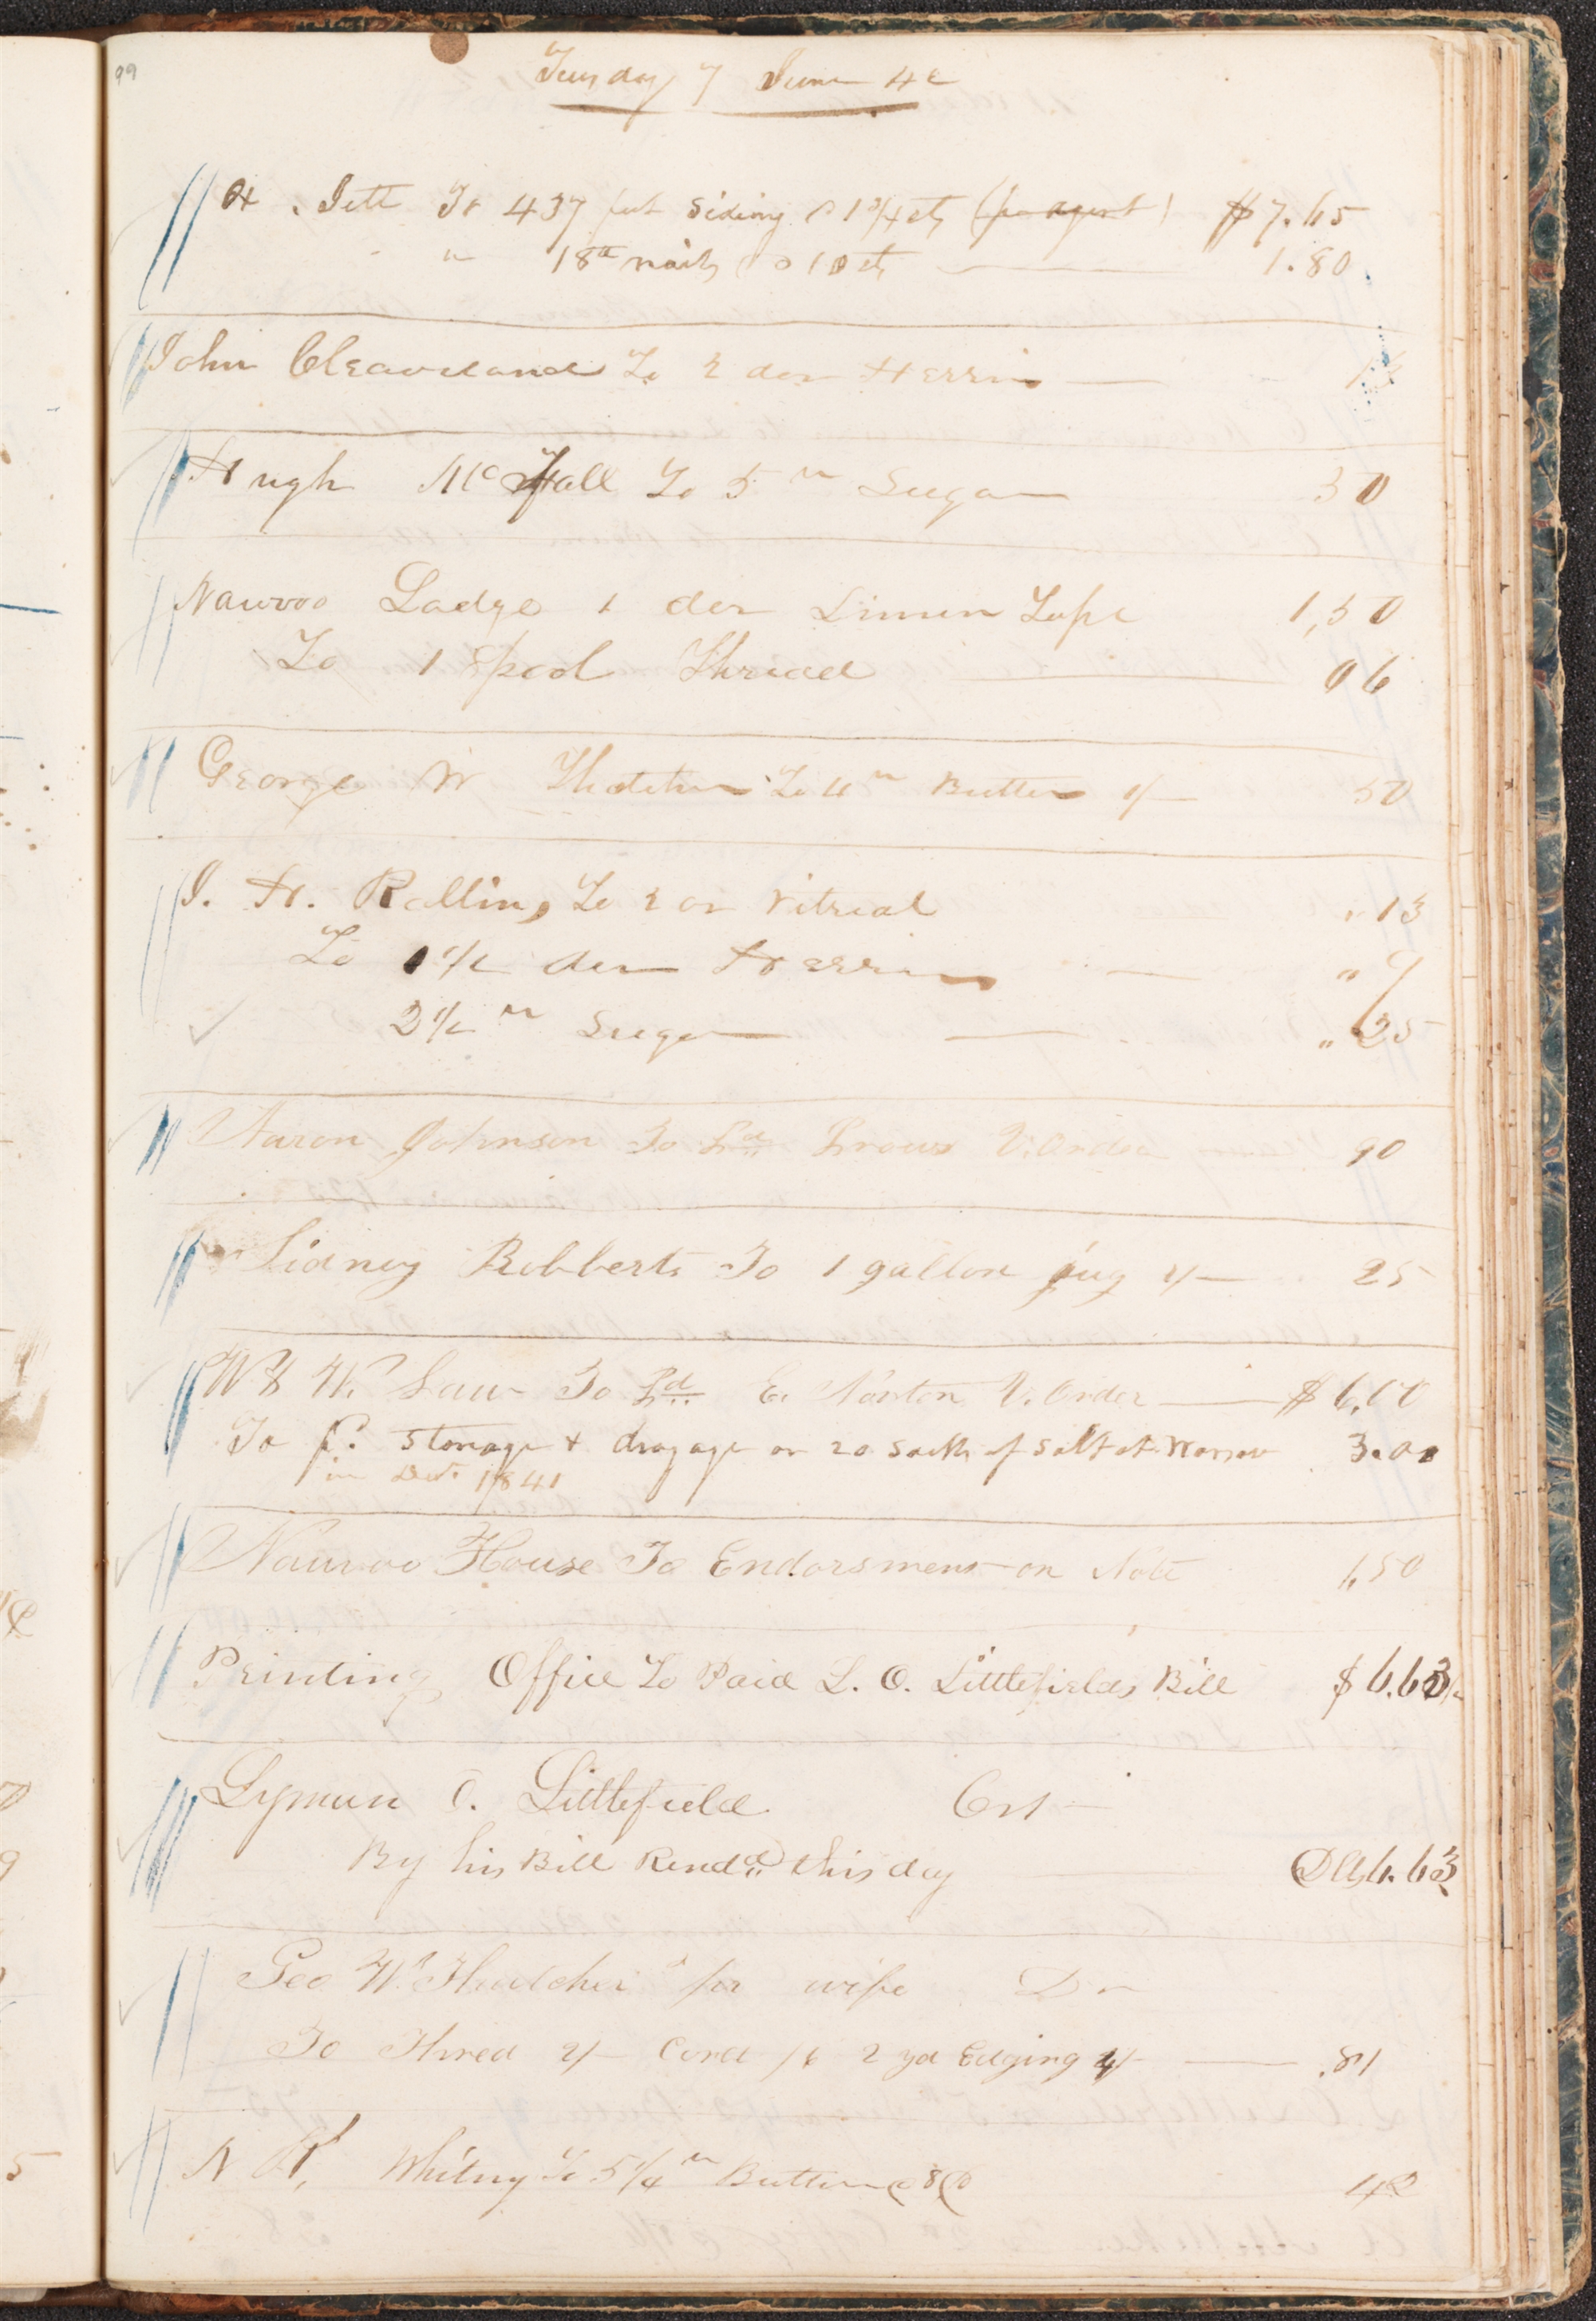 99
Tuesday 7 June 42
H. Tett To 437 feet Siding @ 1 3/4 cts (pr agent) $7.65
" 18 lb nails @ 10 cts 1.80
John Cleaveland To 2 doz Herrin
Hugh McFall To 5 lb Sugar 50
Nauvoo Lodge 1 doz Linnen Tape 1,50
To 1 Spool Thread 06
George W Thatcher To 4 lb Butter 1/— 50
J. H. Rollins To 2 oz Vitrial " 13
To 1 1/2 doz Herrin " 9
2 1/2 lb Sugar " 25
Aaron Johnson To Pd V. Order 90
Sidney Robberts To 1 gallon jug 2/— 25
W & W. Law To Pd E. Norton V. Order $6.00
To Pd. Storage & drayage on 20 Sacks of Salt at Warsaw 3.00
in Dec. 1841
Nauvoo House To Endorsment on Note 1,50
Printing Office To Paid L. O. Littlefields Bill $6.63
Lyman O. Littlefield Cr
By his Bill Rendd this day Dlls 6.63
Geo W. Thatcher pr wife Dr
To Thred 2/— Cord /6 2 yd Edging 4/— .81
N K. Whitny To 5 1/4 lb Butter @ 8c 42